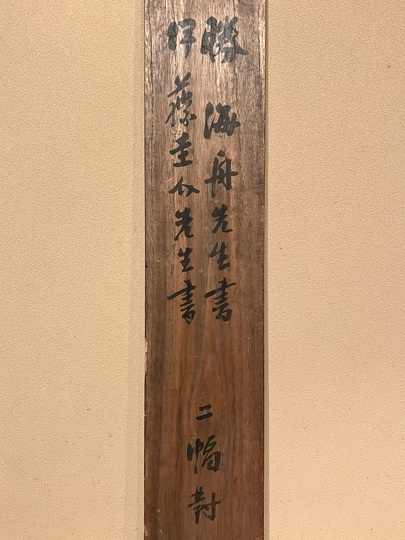 勝 海舟先生書
伊藤圭介先生書
二幅対